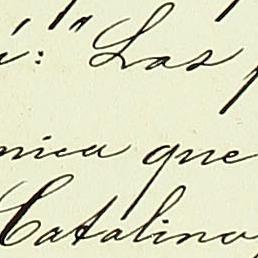 á: "Las p
nica que
Catalino